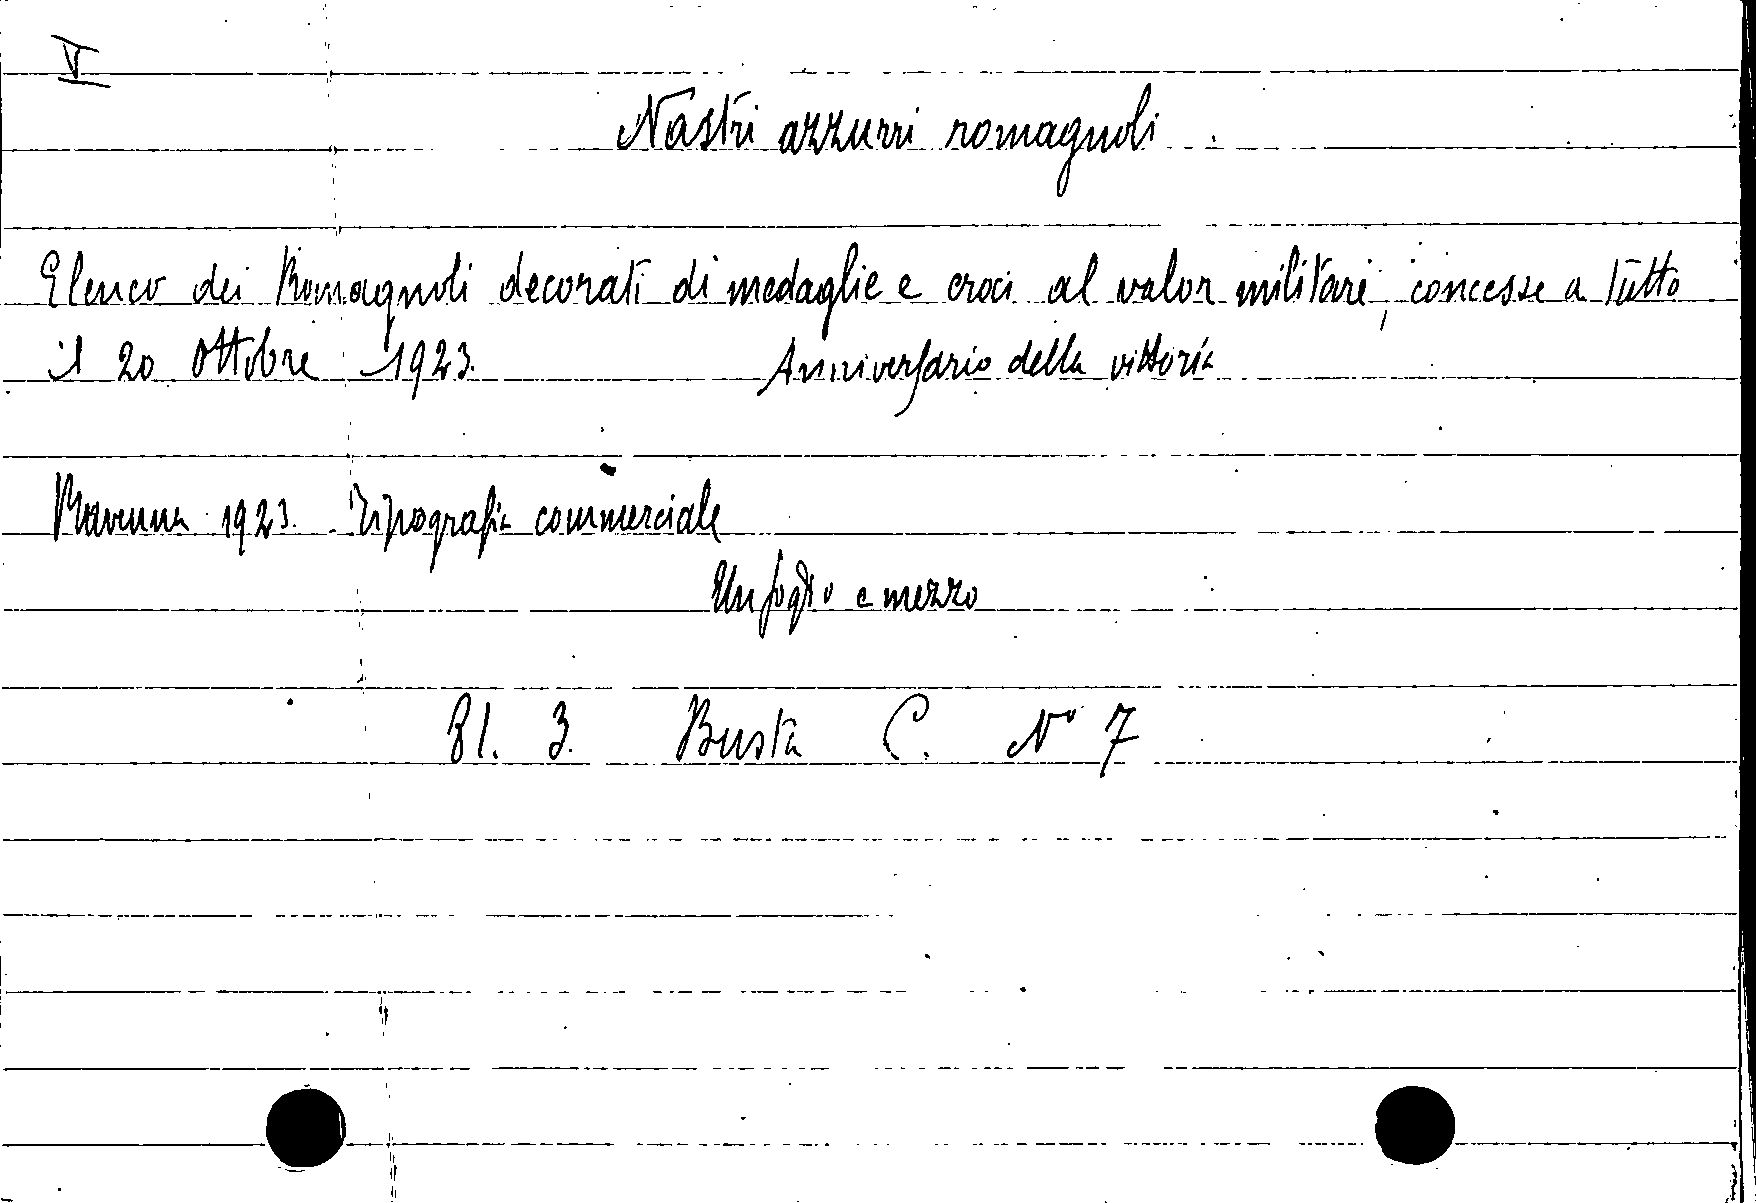 V
Nastri azzurri romagnoli.
Elenco dei Romagnoli decorati di medaglie e croci al valor militare, concesse a tutto
il 20 ottobre 1923. Anniversario della vittoria
Ravenna 1923. Tipografia commerciale
Un foglio e mezzo
81. 3. Busta C. N° 7